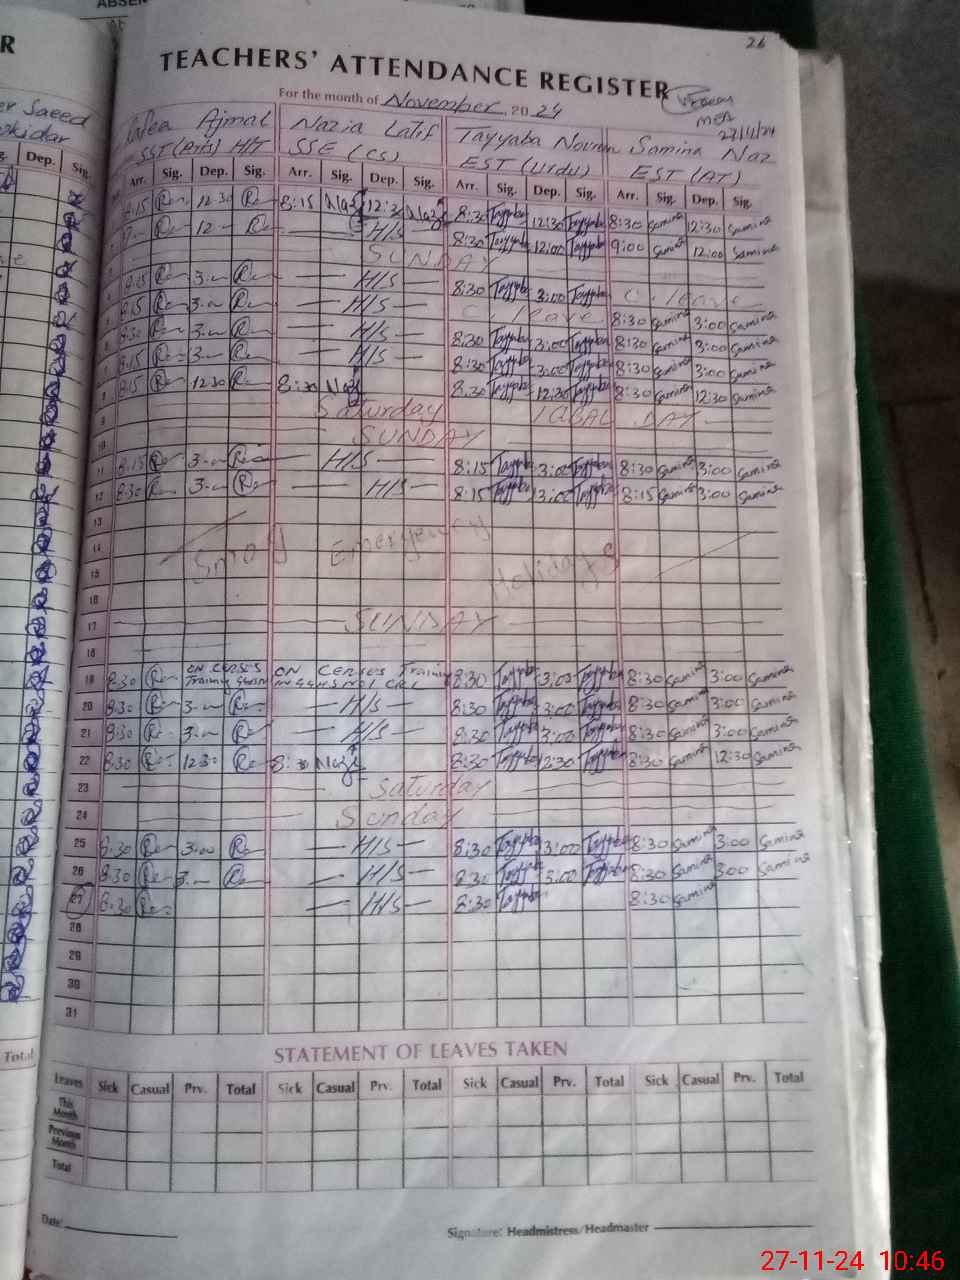 26
TEACHERS' ATTENDANCE REGISTER
For the month of November 2024
MEA
27/11/24
er Saeed
okidar
Ajmal Nazia Latif Tayyaba Samina Naz
SST (Arts) H/T SSE (CS) EST (Urdu) EST (AT)
Dep. Sig. Arr. Sig. Dep. Sig. Arr. Sig. Dep. Sig. Arr. Sig. Dep. Sig. Arr. Sig. Dep. Sig.
8:15 12:30 8:15 Naz 12:30 Naz 8:30 Tayyaba 12:30 Tayyaba 8:30 Samina 12:30 Samina
12 — H/S — 8:30 Tayyaba 12:00 Tayyaba 9:00 Samina 12:00 Samina
SUNDAY
8:15 3.00 — H/S — 8:30 Tayyaba 3:00 Tayyaba C. leave
8:15 3.00 — H/S — C. leave 8:30 Samina 3:00 Samina
8:30 3.00 — H/S — 8:30 Tayyaba 3:00 Tayyaba 8:30 Samina 3:00 Samina
8:15 3.00 — H/S — 8:30 Tayyaba 3:00 Tayyaba 8:30 Samina 3:00 Samina
8:15 12:30 8:30 Naz 8:30 Tayyaba 12:30 Tayyaba 8:30 Samina 12:30 Samina
9 Saturday IQBAL DAY
10 SUNDAY
11 8:15 3.00 — H/S — 8:15 Tayyaba 3:00 Tayyaba 8:30 Samina 3:00 Samina
12 8:30 3.00 — H/S — 8:15 Tayyaba 3:00 Tayyaba 8:15 Samina 3:00 Samina
13
14 Smog Emergency
15 Holidays
16
17 SUNDAY
18
19 8:30 ON CERSES Training ON CERSES Training 8:30 Tayyaba 3:00 Tayyaba 8:30 Samina 3:00 Samina
20 8:30 3.00 — H/S — 8:30 Tayyaba 3:00 Tayyaba 8:30 Samina 3:00 Samina
21 8:30 3.00 — H/S — 8:30 Tayyaba 3:00 Tayyaba 8:30 Samina 3:00 Samina
22 8:30 12:30 8:30 Naz 8:30 Tayyaba 12:30 Tayyaba 8:30 Samina 12:30 Samina
23 Saturday
24 Sunday
25 8:30 3:00 — H/S — 8:30 Tayyaba 3:00 Tayyaba 8:30 Samina 3:00 Samina
26 8:30 3.00 — H/S — 8:30 Tayyaba 3:00 Tayyaba 8:30 Samina 3:00 Samina
27 8:30 — H/S — 8:30 Tayyaba 8:30 Samina
28
29
30
31
Total
STATEMENT OF LEAVES TAKEN
Leaves Sick Casual Prv. Total Sick Casual Prv. Total Sick Casual Prv. Total Sick Casual Prv. Total
This Month
Previous Month
Total
Date: Signature: Headmistress/Headmaster
27-11-24 10:46